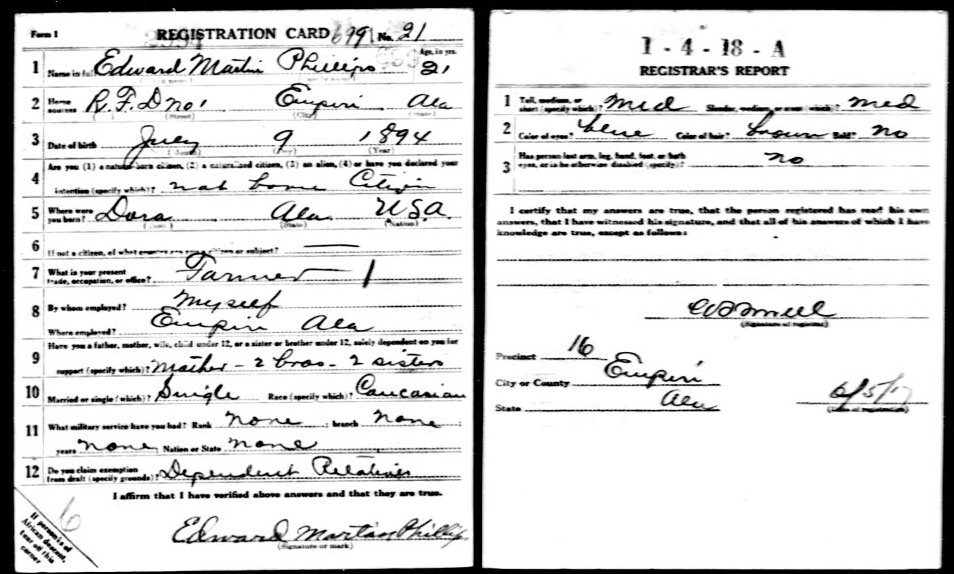 Form 1
REGISTRATION CARD No. 21
1 Name in full Edward Martin Phillips Age, in yrs. 21
2 Home address R.F.D no 1 Empiri Ala
(Street) (City) (State)
3 Date of birth July 9 1894
(Month) (Day) (Year)
4 Are you (1) a natural-born citizen, (2) a naturalized citizen, (3) an alien, (4) or have you declared your
intention (specify which)? nat borne Citizin
5 Where were you born? Dora Ala USA
(Town) (State) (Nation)
6 If not a citizen, of what country are you a citizen or subject?
7 What is your present trade, occupation, or office? Farmer 1
8 By whom employed? Myself
Where employed? Empiri Ala
9 Have you a father, mother, wife, child under 12, or a sister or brother under 12, solely dependent on you for
support (specify which)? Mother - 2 bros - 2 sisters
10 Married or single (which)? Single Race (specify which)? Caucasian
11 What military service have you had? Rank none ; branch none ;
years none Nation or State none
12 Do you claim exemption from draft (specify grounds)? Dependent Relatives
I affirm that I have verified above answers and that they are true.
Edward Martin Phillips
(Signature or mark)
If person is of
African descent,
tear off this
corner
6
1 - 4 - 18 - A
REGISTRAR'S REPORT
1 Tall, medium, or short (specify which)? Med Slender, medium, or stout (which)? med
2 Color of eyes? blue Color of hair? brown Bald? No
3 Has person lost arm, leg, hand, foot, or both
eyes, or is he otherwise disabled (specify)? no
I certify that my answers are true, that the person registered has read his own
answers, that I have witnessed his signature, and that all of his answers of which I have
knowledge are true, except as follows:
(Signature of registrar)
Precinct 16
City or County Empiri
State Ala 6/5/17
(Date of registration)